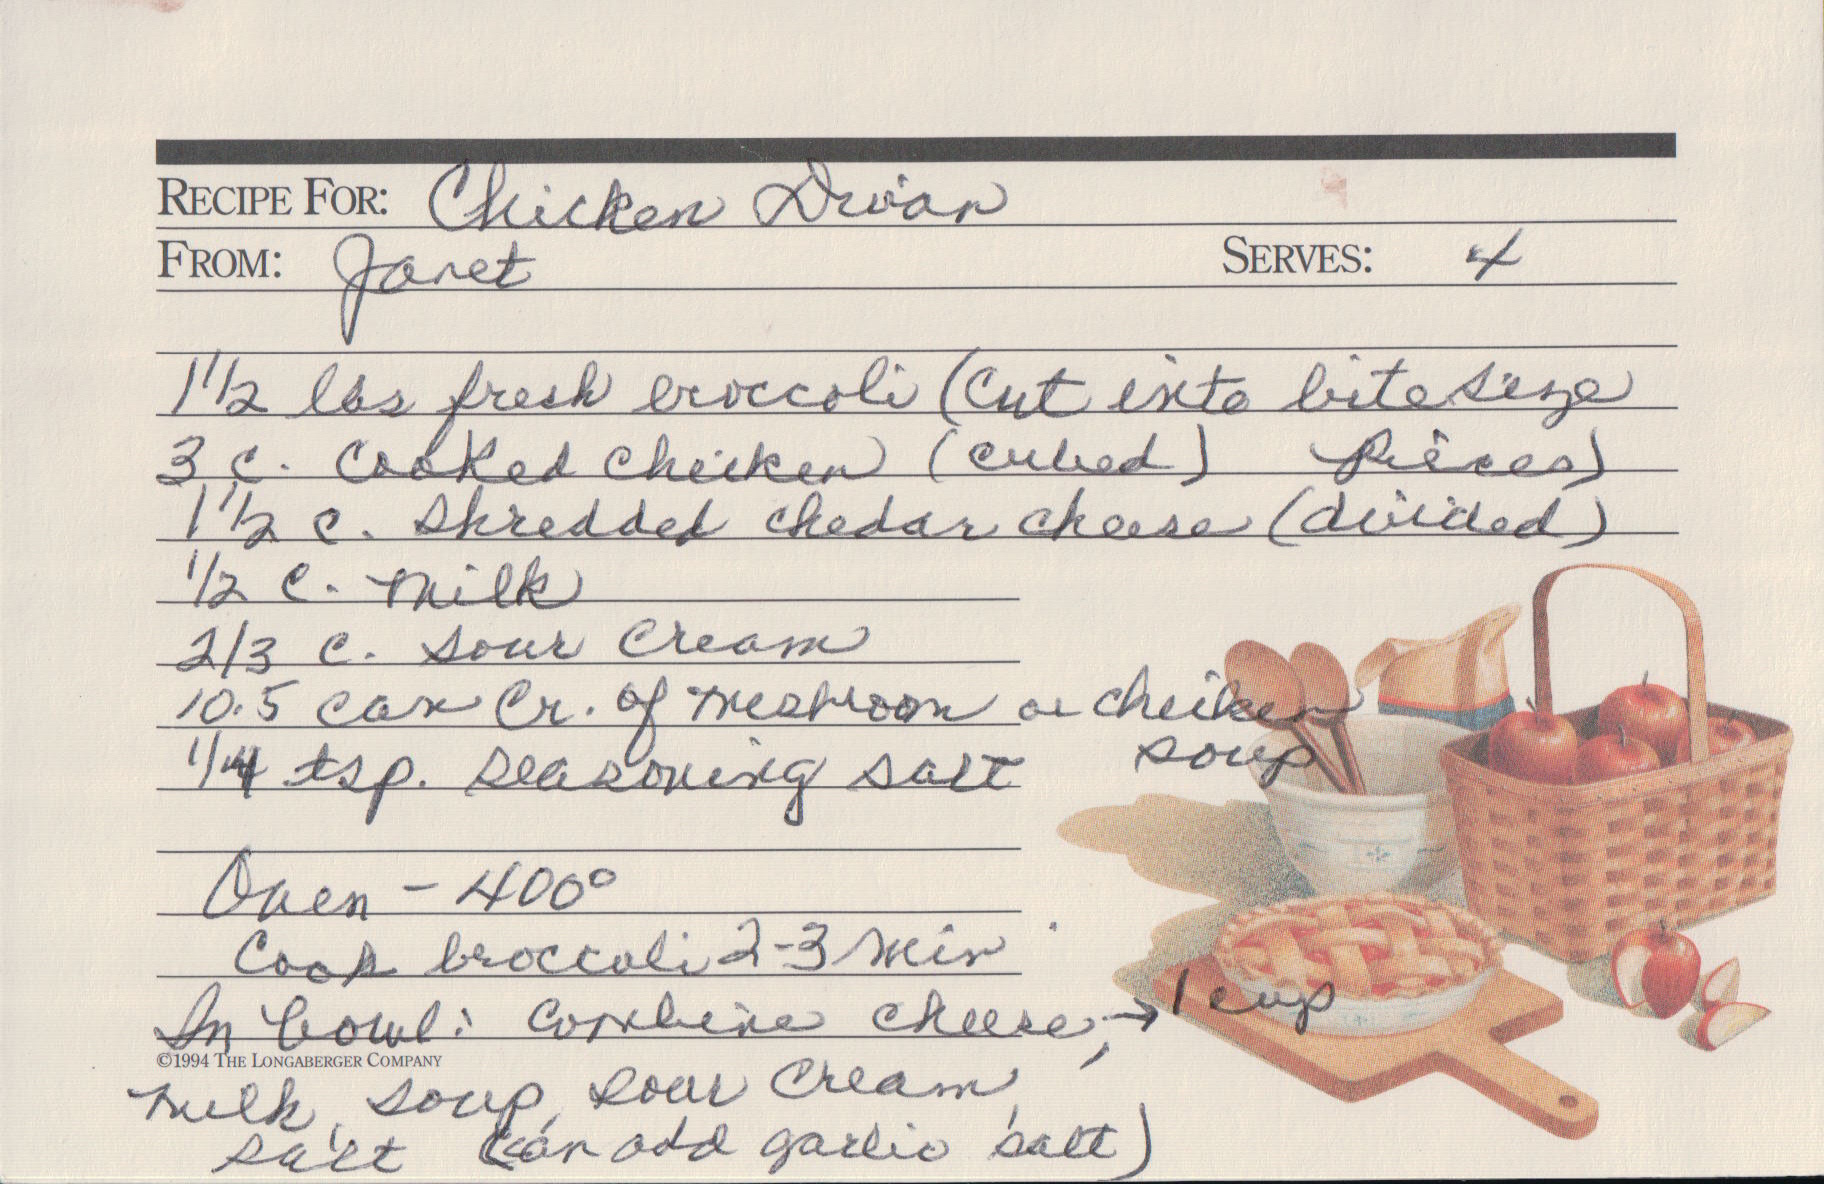 RECIPE FOR: Chicken Divan
FROM: Janet SERVES: 4
1 1/2 lbs fresh broccoli (cut into bite size
3 c. cooked chicken (cubed) pieces)
1 1/2 c. shredded chedar cheese (divided)
1/2 c. milk
2/3 c. sour cream
10.5 can Cr. of meshroom or chicken
1/4 tsp. seasoning salt soup
Oven - 400°
Cook broccoli 2-3 min
In bowl: combine cheese, → 1 cup
©1994 THE LONGABERGER COMPANY
milk, soup, sour cream,
salt (can add garlic salt)